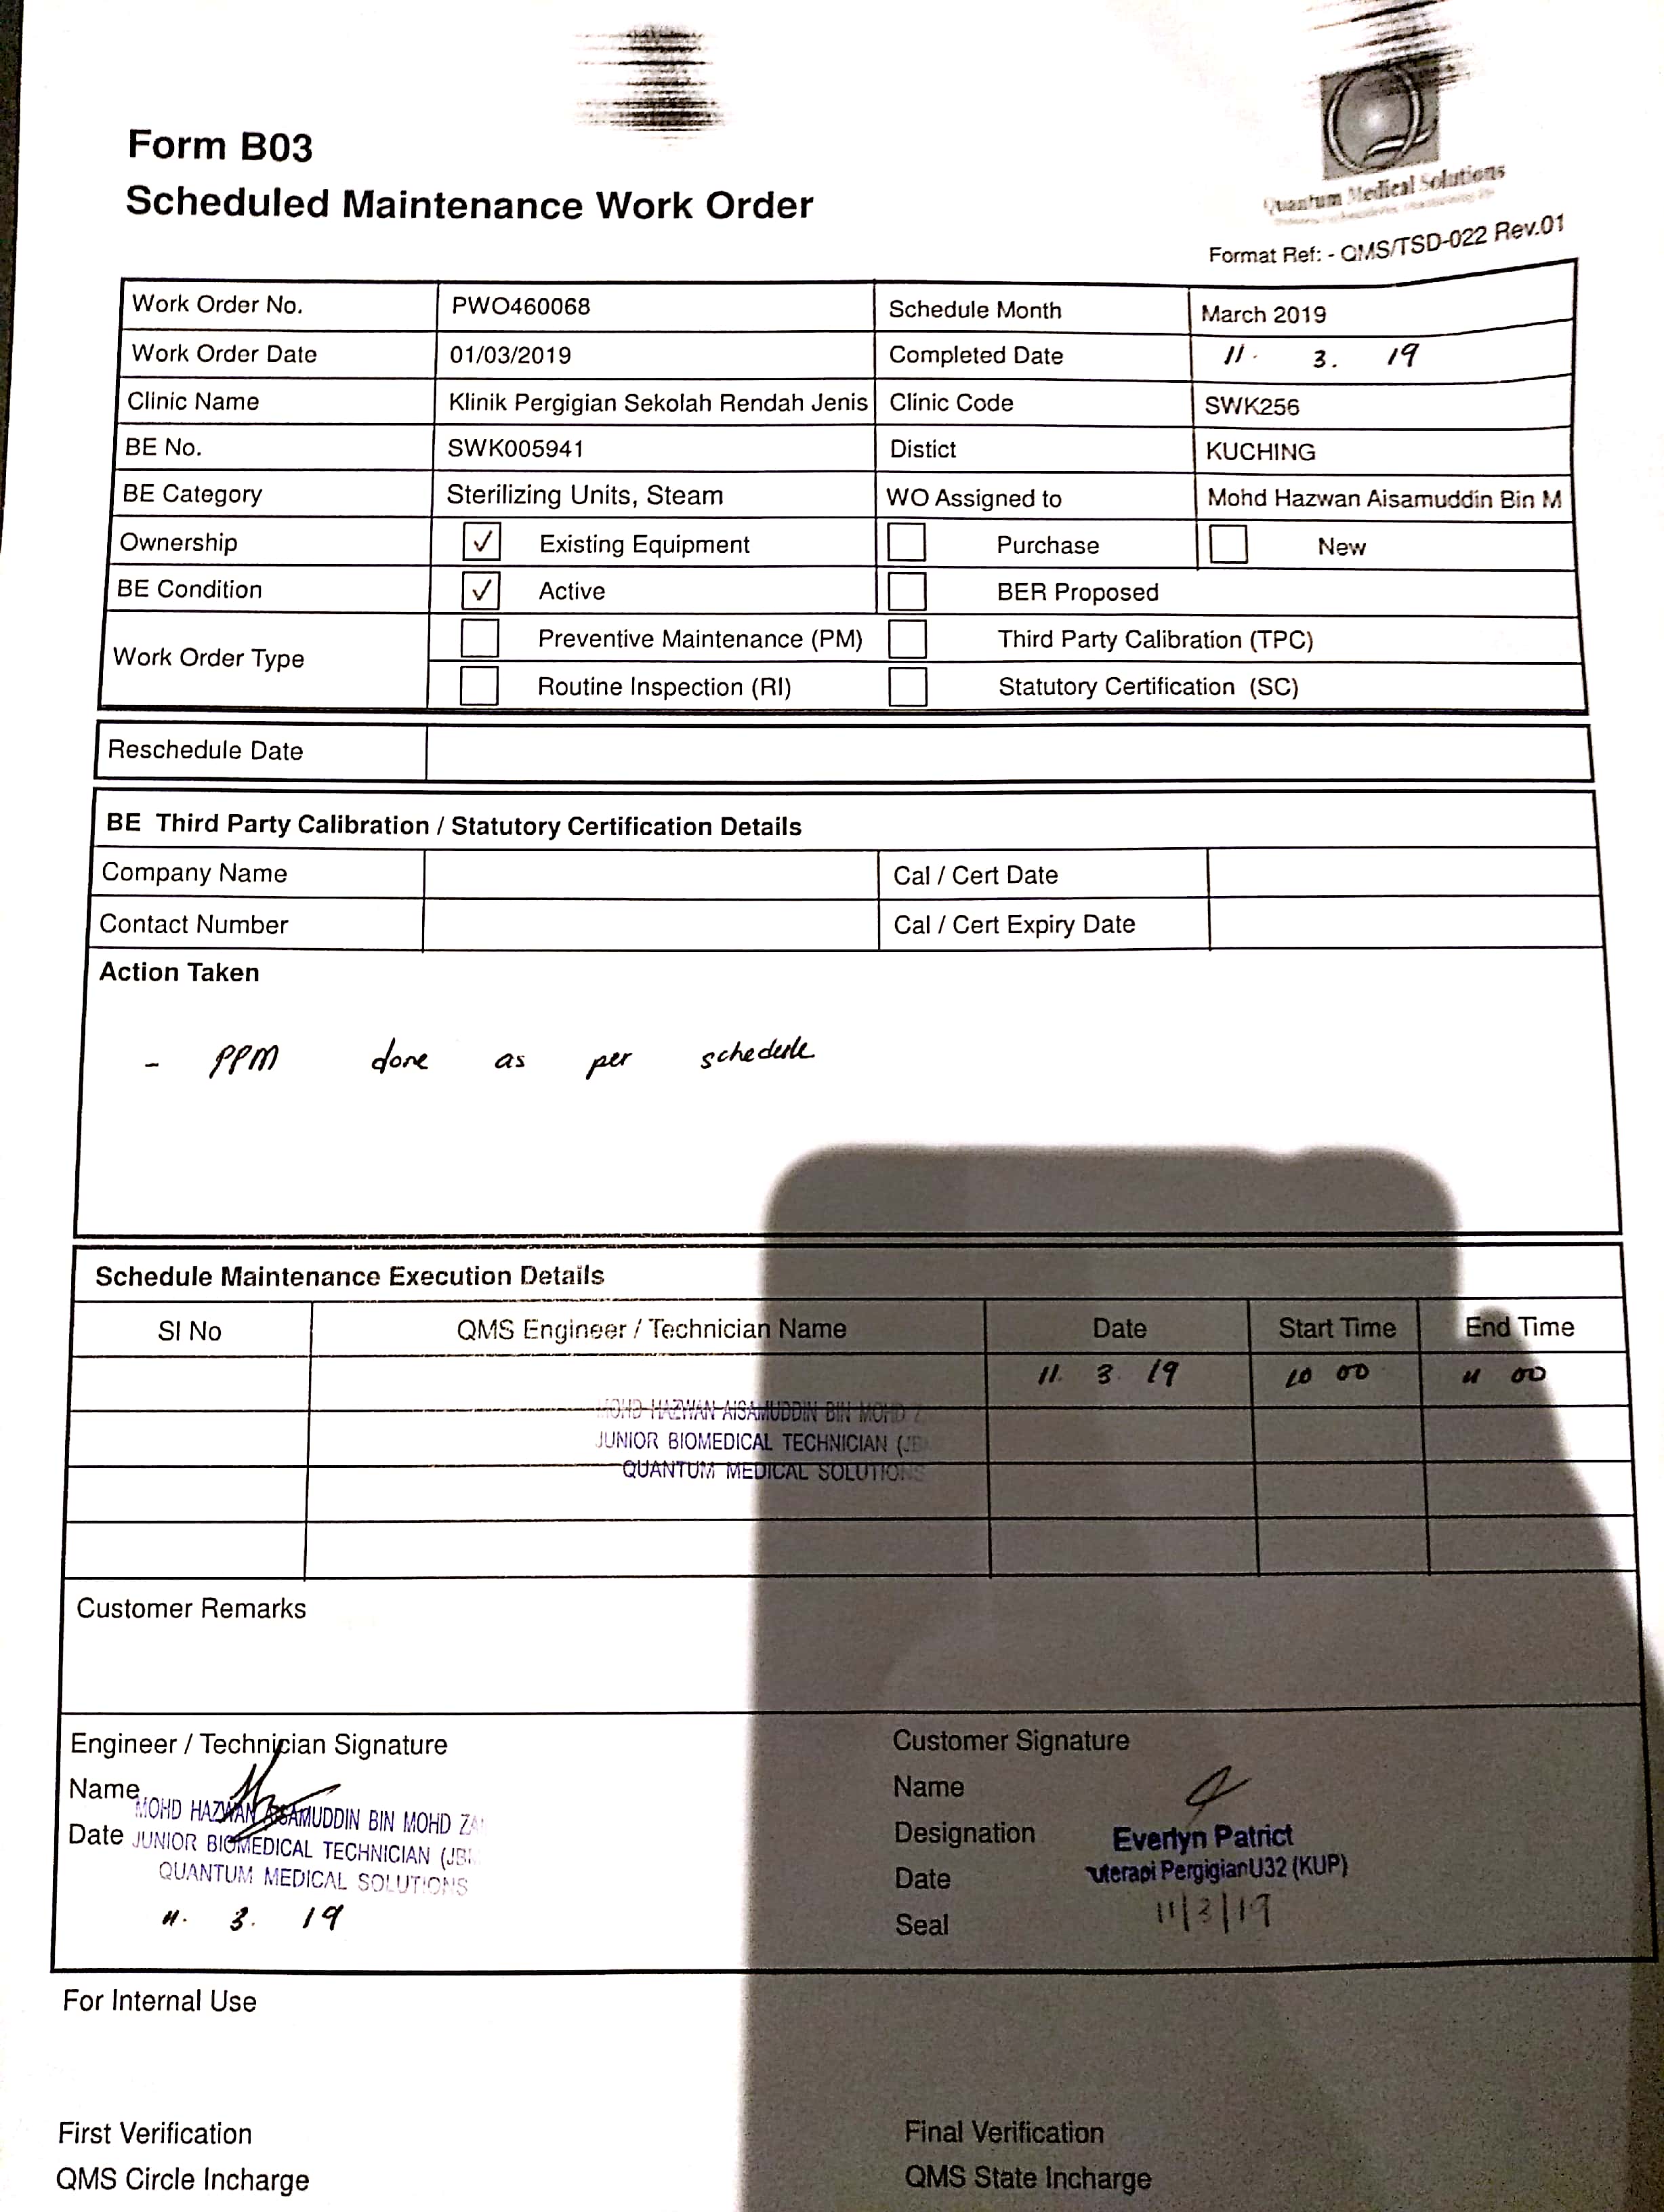 Form B03
Scheduled Maintenance Work Order
Quantum Medical Solutions
Format Ref: - QMS/TSD-022 Rev.01
Work Order No. PWO460068 Schedule Month March 2019
Work Order Date 01/03/2019 Completed Date 11. 3. 19
Clinic Name Klinik Pergigian Sekolah Rendah Jenis Clinic Code SWK256
BE No. SWK005941 Distict KUCHING
BE Category Sterilizing Units, Steam WO Assigned to Mohd Hazwan Aisamuddin Bin M
Ownership ✓ Existing Equipment Purchase New
BE Condition ✓ Active BER Proposed
Work Order Type Preventive Maintenance (PM) Third Party Calibration (TPC)
Routine Inspection (RI) Statutory Certification (SC)
Reschedule Date
BE Third Party Calibration / Statutory Certification Details
Company Name Cal / Cert Date
Contact Number Cal / Cert Expiry Date
Action Taken
- PPM done as per schedule
Schedule Maintenance Execution Details
SI No QMS Engineer / Technician Name Date Start Time End Time
11. 3. 19 10 00 11 00
MOHD HAZWAN AISAMUDDIN BIN MOHD
JUNIOR BIOMEDICAL TECHNICIAN
QUANTUM MEDICAL SOLUTIONS
Customer Remarks
Engineer / Technician Signature
Name
MOHD HAZWAN AISAMUDDIN BIN MOHD
Date JUNIOR BIOMEDICAL TECHNICIAN
QUANTUM MEDICAL SOLUTIONS
11. 3. 19
Customer Signature
Name
Designation Everlyn Patrict
Date PergigianU32 (KUP)
Seal 11/3/19
For Internal Use
First Verification Final Verification
QMS Circle Incharge QMS State Incharge